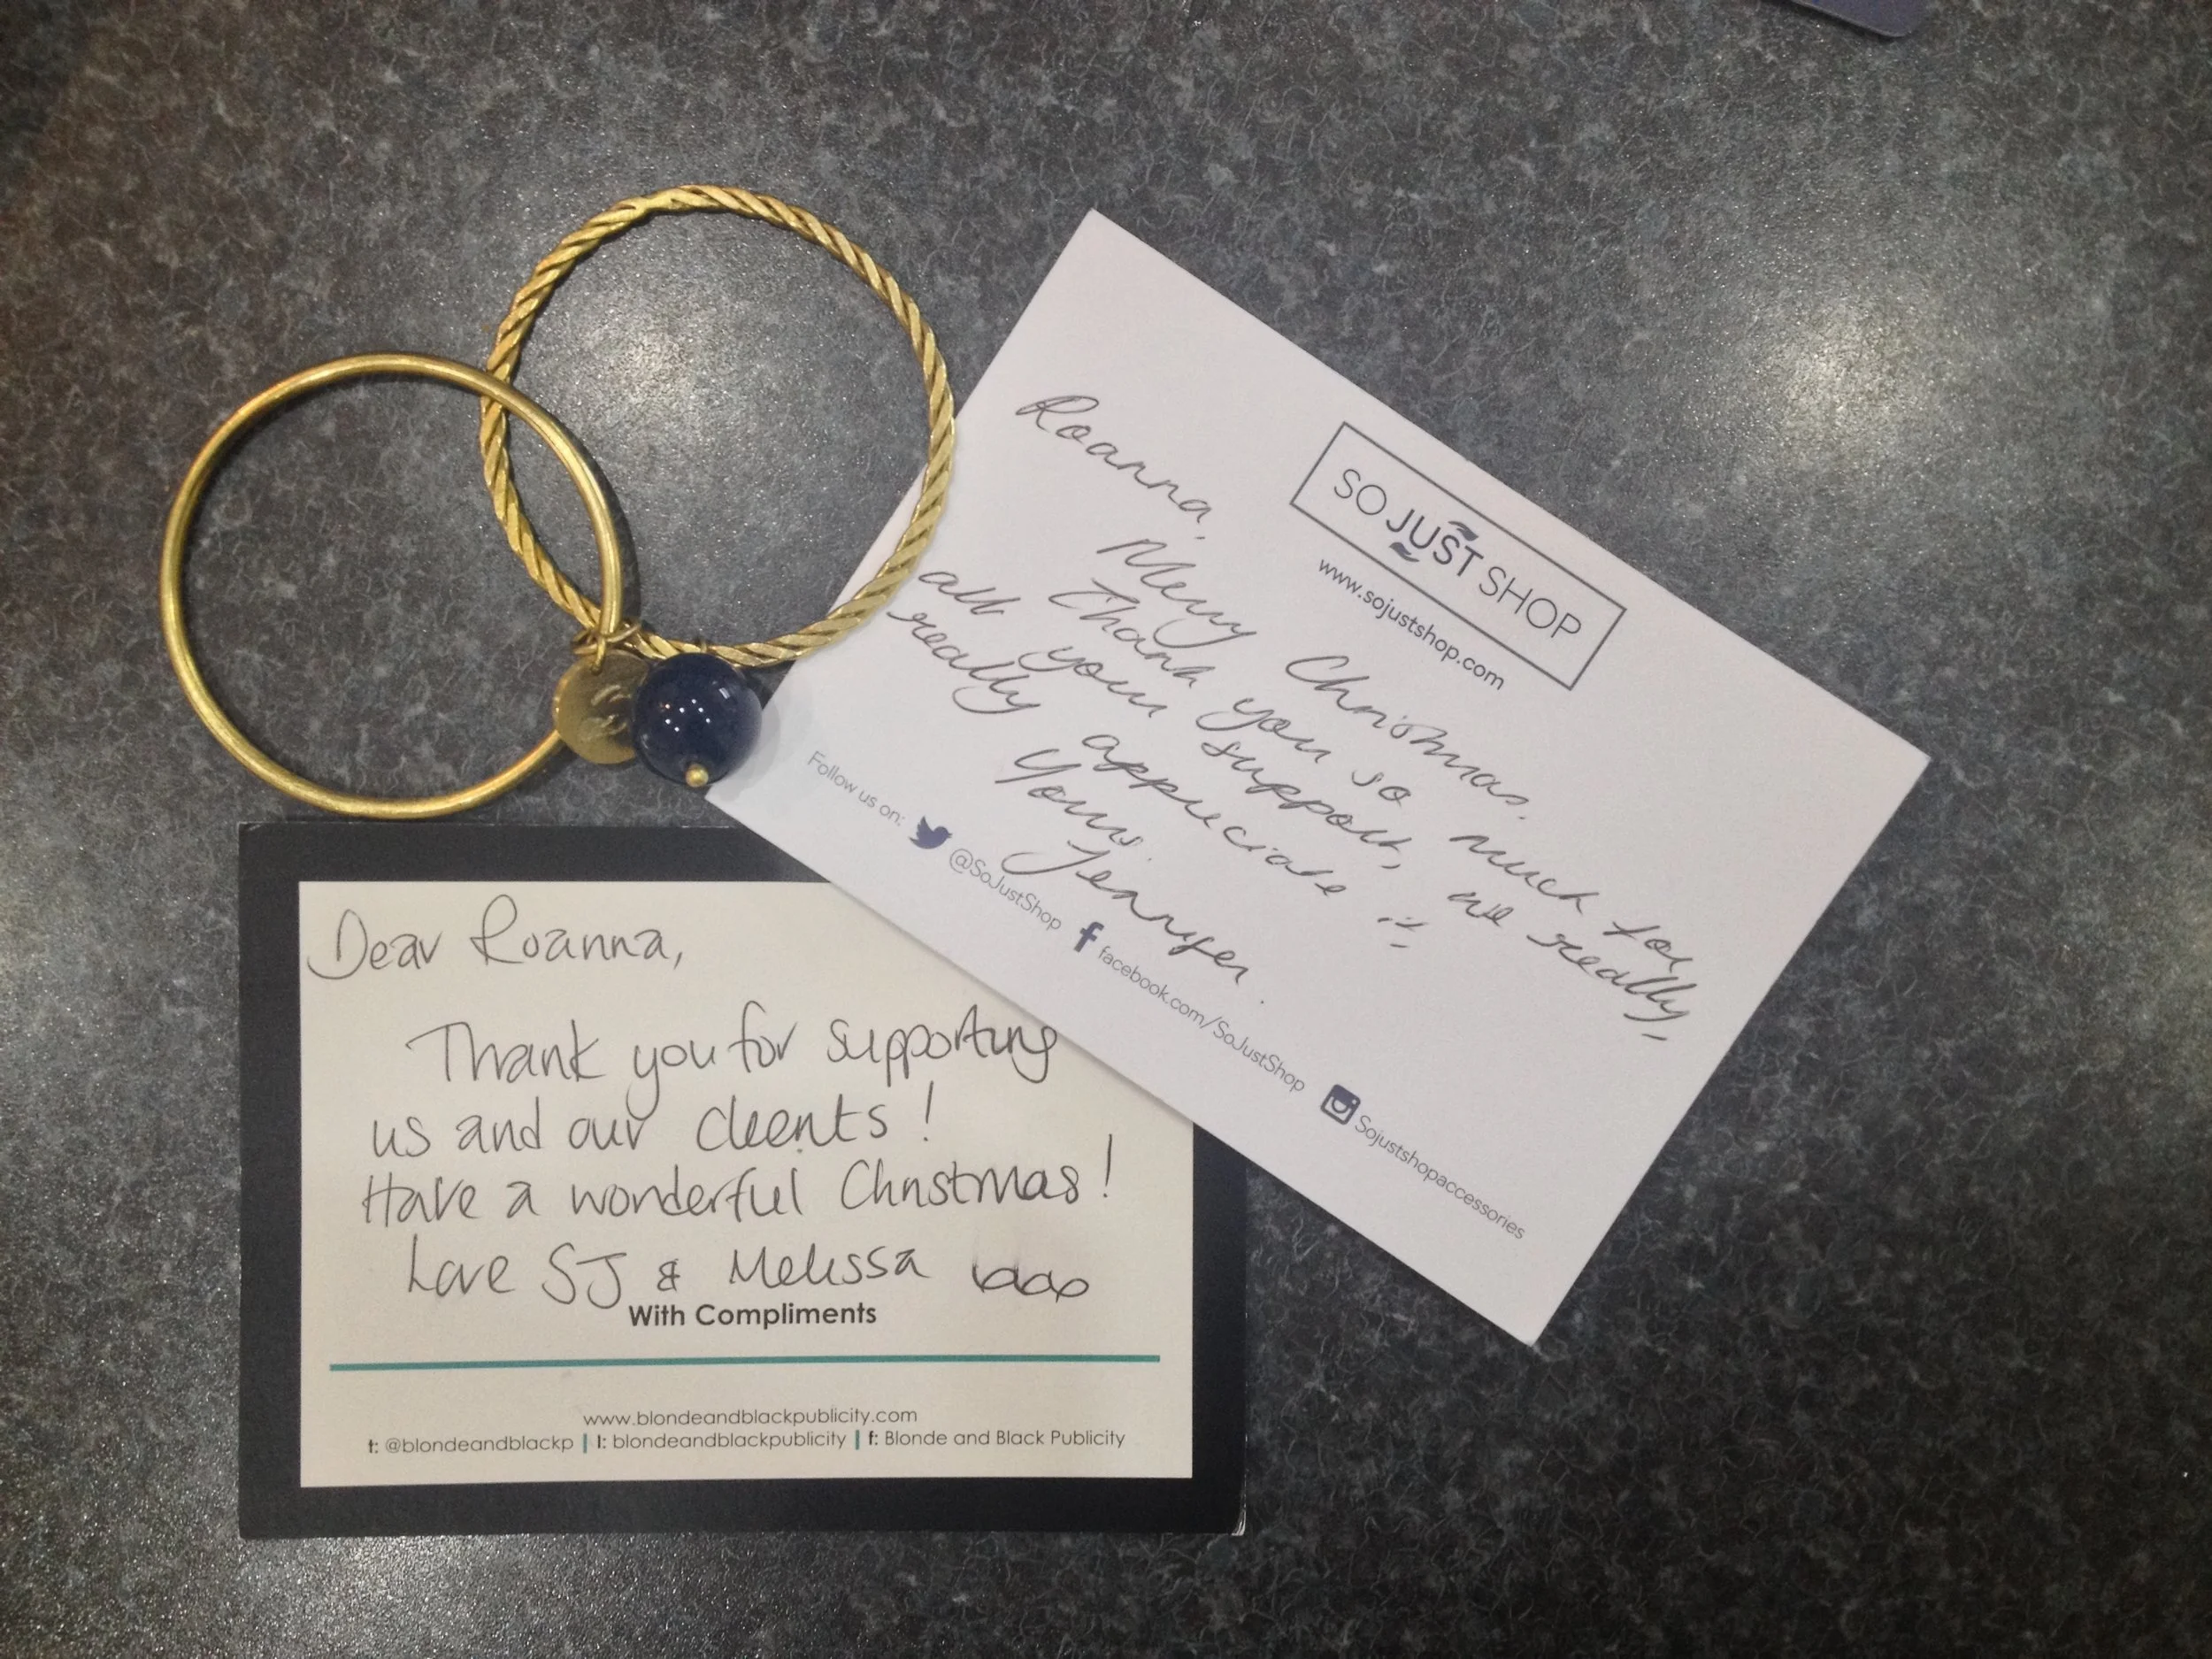 SO JUST SHOP
www.sojustshop.com
Roanna,
Merry Christmas.
Thank you so much for
all your support, we really,
really appreciate it
Yours.
Jennifer.
Follow us on: @SoJustShop facebook.com/SoJustShop Sojustshopaccessories
Dear Roanna,
Thank you for supporting
us and our clients!
Have a wonderful Christmas!
Love SJ & Melissa
With Compliments
www.blondeandblackpublicity.com
t: @blondeandblackp | I: blondeandblackpublicity | f: Blonde and Black Publicity